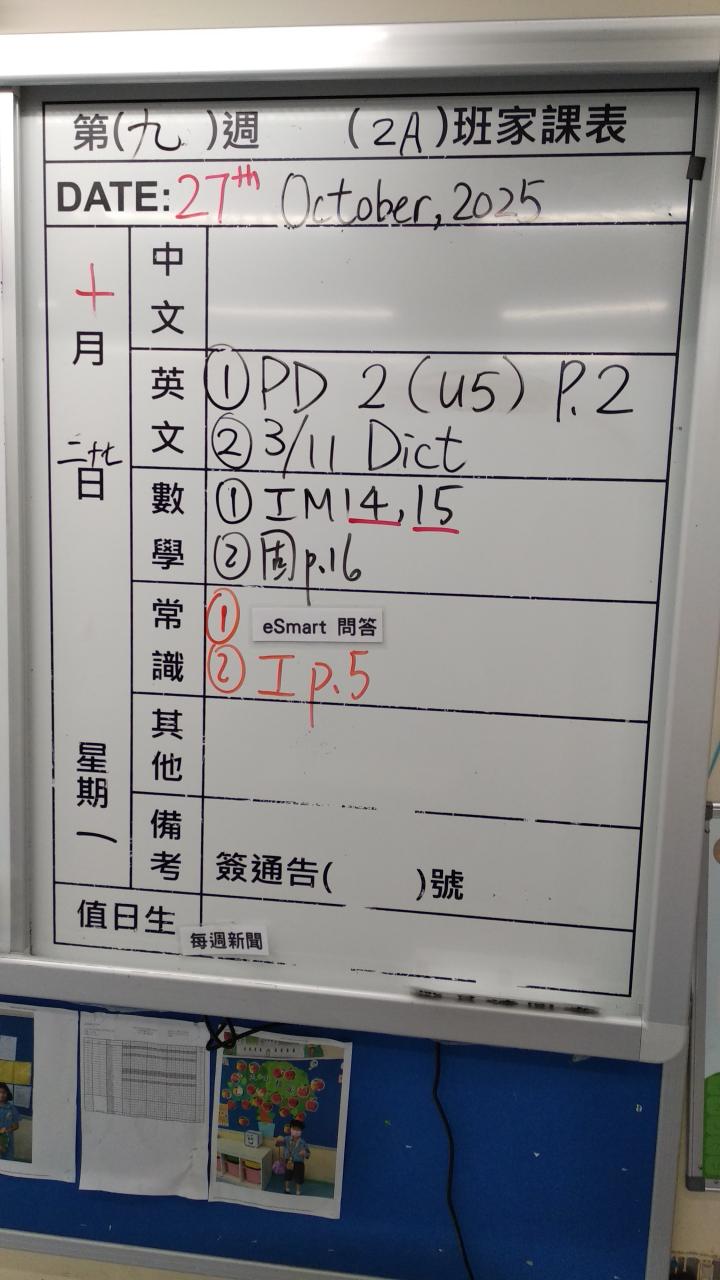 第(九)週 (2A)班家課表
DATE: 27th October, 2025
十月二十七日 星期一
中文
英文
① PD 2 (U5) P.2
② 3/11 Dict
數學
① IM14, 15
② 固 p.16
常識
① eSmart 問答
② I p.5
其他
備考
簽通告( )號
值日生
每週新聞